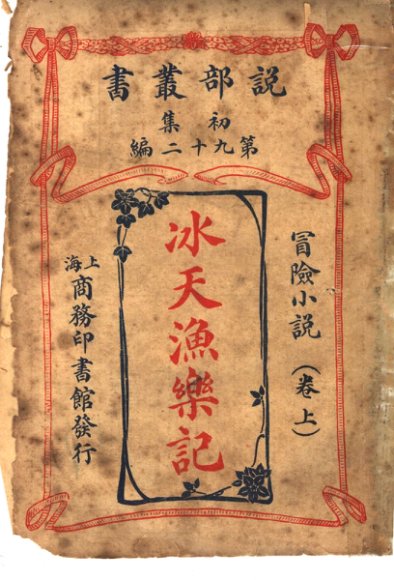 説部叢書
初集
第九十二編
冒險小説（卷上）
冰天漁樂記
上海商務印書館發行